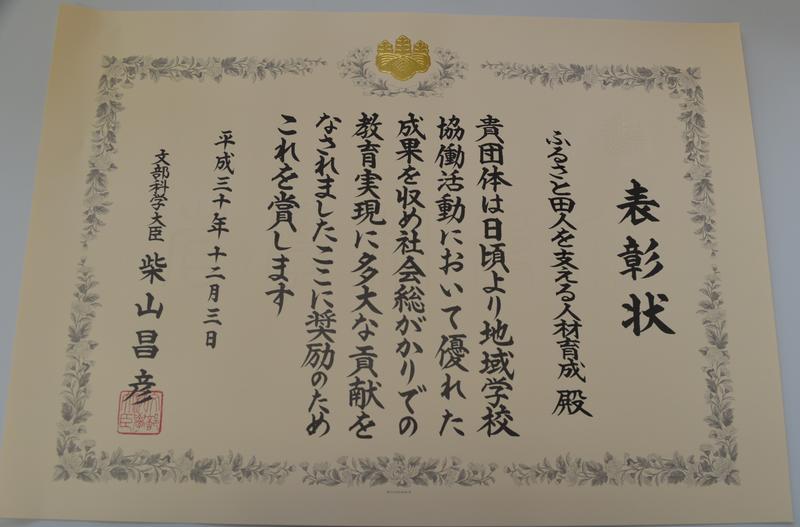 表彰状
ふるさと田人を支える人材育成 殿
貴団体は日頃より地域学校
協働活動において優れた
成果を収め社会総がかりでの
教育実現に多大な貢献を
なされましたここに奨励のため
これを賞します
平成三十年十二月三日
文部科学大臣 柴山昌彦